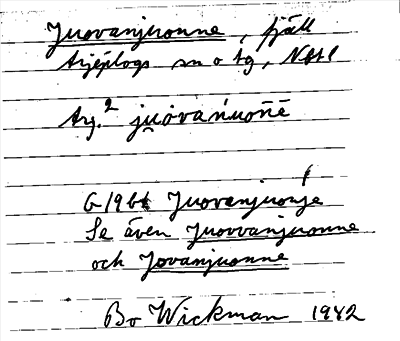 Juovanjuonne, fjäll
Arjeplogs sn o tg, Nbtl
Arj.² ju̯ȯvańuon̄ē
G 1961 Juovanjuonje
Se även Juovvanjuonne
och Jovanjuonne
Bo Wickman 1942